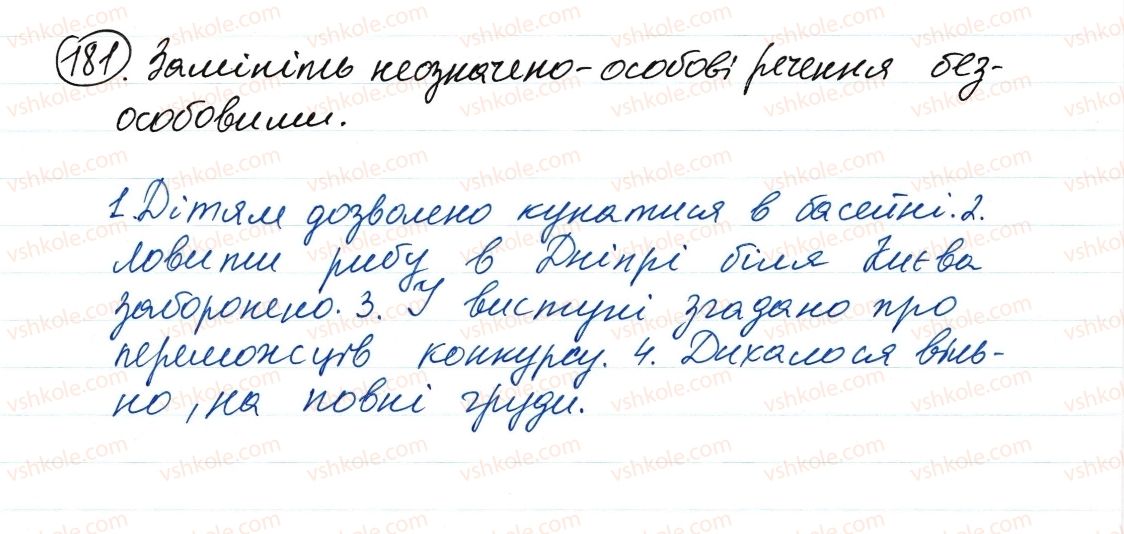 181. Замініть неозначено-особові речення без-
особовими.
1. Дітям дозволено купатися в басейні. 2.
Ловити рибу в Дніпрі біля Києва
заборонено. 3. У виступі згадано про
переможців конкурсу. 4. Дихалося віль-
но, на повні груди.
vshkole.com